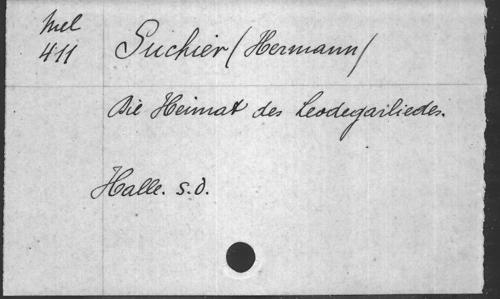 Mel
411
Suchier (Hermann)
Die Heimat des Leodegarliedes.
Halle. s.d.